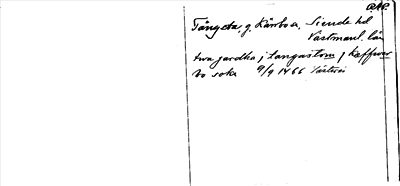 O.A.P.
Tångsta, g. Kärrbo sn, Siende hd
Västmanl. län
twa gardha j Langastom j Kæffruor
bo sokn 9/9 1466